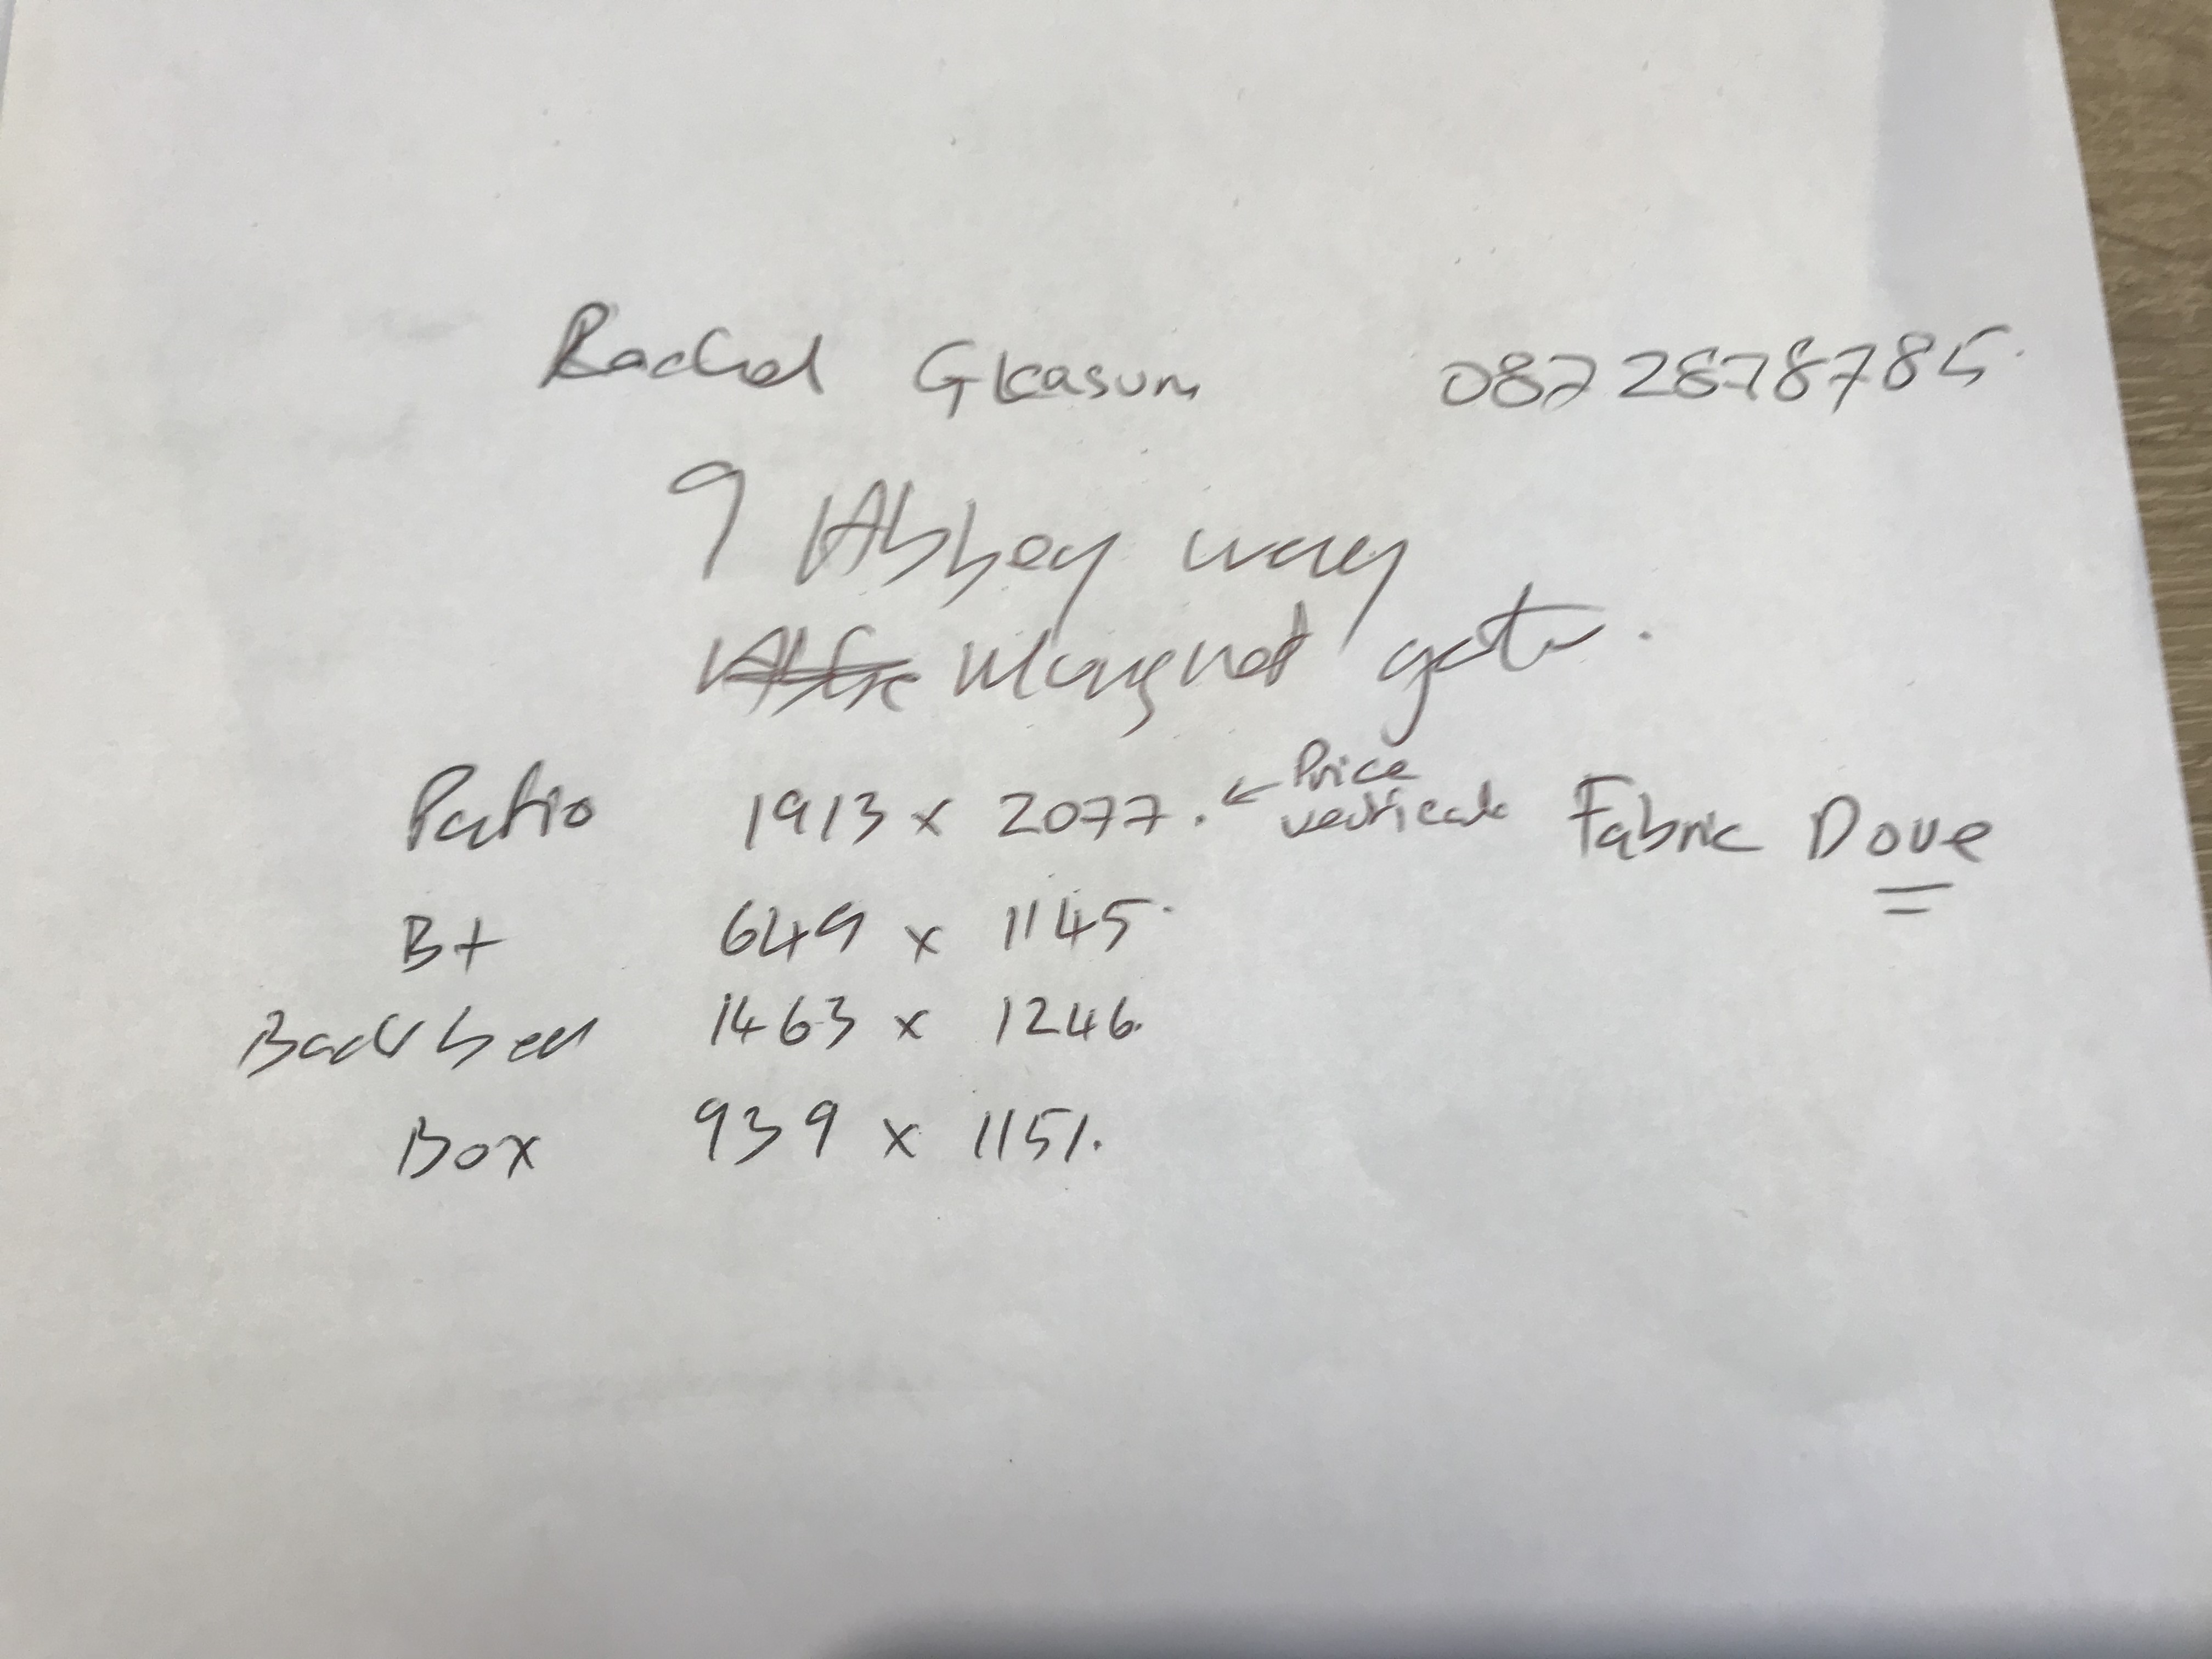 Rachel Gleasure 087 2878785.
9 Abbey way
Magnet gate.
Patio 1913 x 2077. ← Price verticals Fabric Dove
B+ 649 x 1145.
Back bed 1463 x 1246.
Box 939 x 1151.